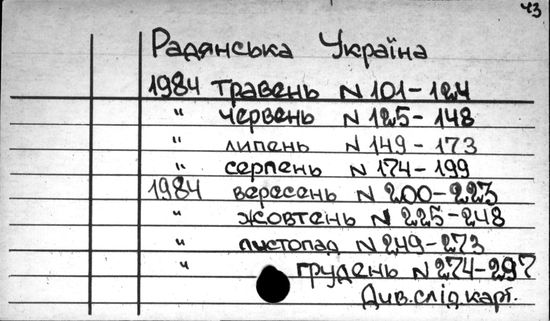 43
Радянська Україна
1984 травень N 101-124
" червень N 125-148
" липень N 149-173
" серпень N 174-199
1984 вересень N 200-223
" жовтень N 225-248
" листопад N 249-273
" грудень N 274-297
Див. слід. карт.